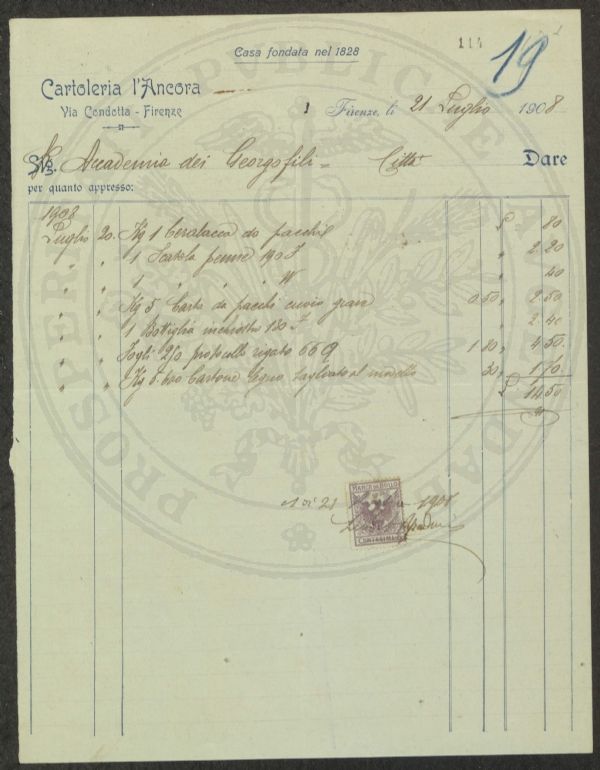 Casa fondata nel 1828
114
19
Cartoleria l'Ancora
Via Condotta - Firenze
1 Firenze, li 21 Luglio 1908
Accademia dei Georgofili - Città Dare
per quanto appresso:
1908
Luglio 20. Kg 1 Ceralacca da pacchi £ 80
" " 1 Scatola penne 190 F " 2.20
" " 1 " " W " 40
" " Kg 5 Carta da pacchi cuoio grand 0.50 " 2.50
" " 1 Bottiglia inchiostro 120 F " 2.40
" " Fogli 2/0 protocollo rigato 66 Q 1 80 " 4 50
" " Kg 5.600 Cartone legno tagliato al modello 30 " 1 70
£ 14.50
A dì 21 1908
MARCA DA BOLLO
CENTESIMI
PROSPERITÀ PUBBLICA